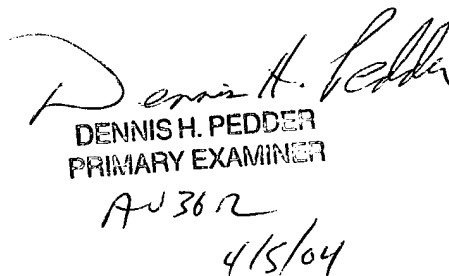 Dennis H. Pedder
DENNIS H. PEDDER
PRIMARY EXAMINER
AU 3612
4/5/04